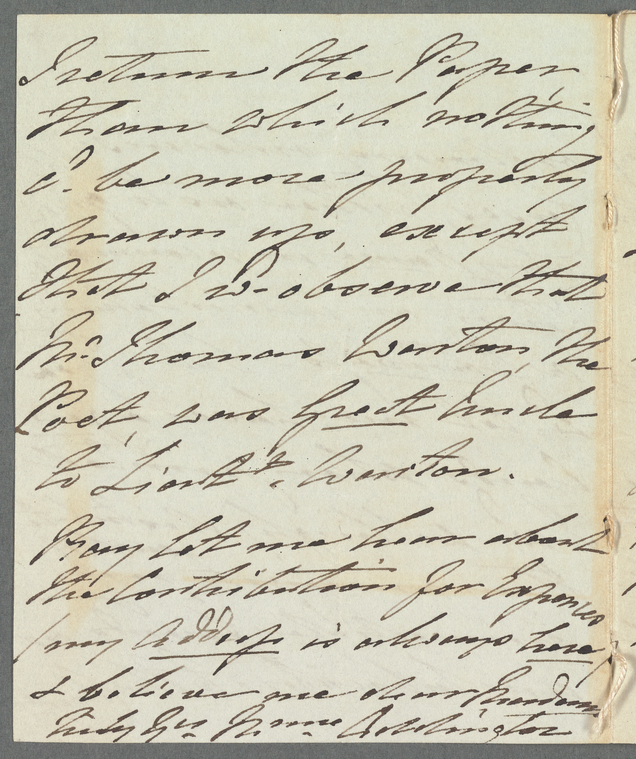 I return the Paper,
than which nothing
cd. be more properly
drawn up, except
that I wd. observe that
Mr. Thomas Warton, the
Poet, was great Uncle
to Lieut. Warton.
Pray let me hear about
the Contribution for Expences
(my Address is always here)
& believe me dear Madam
truly yrs. Addington